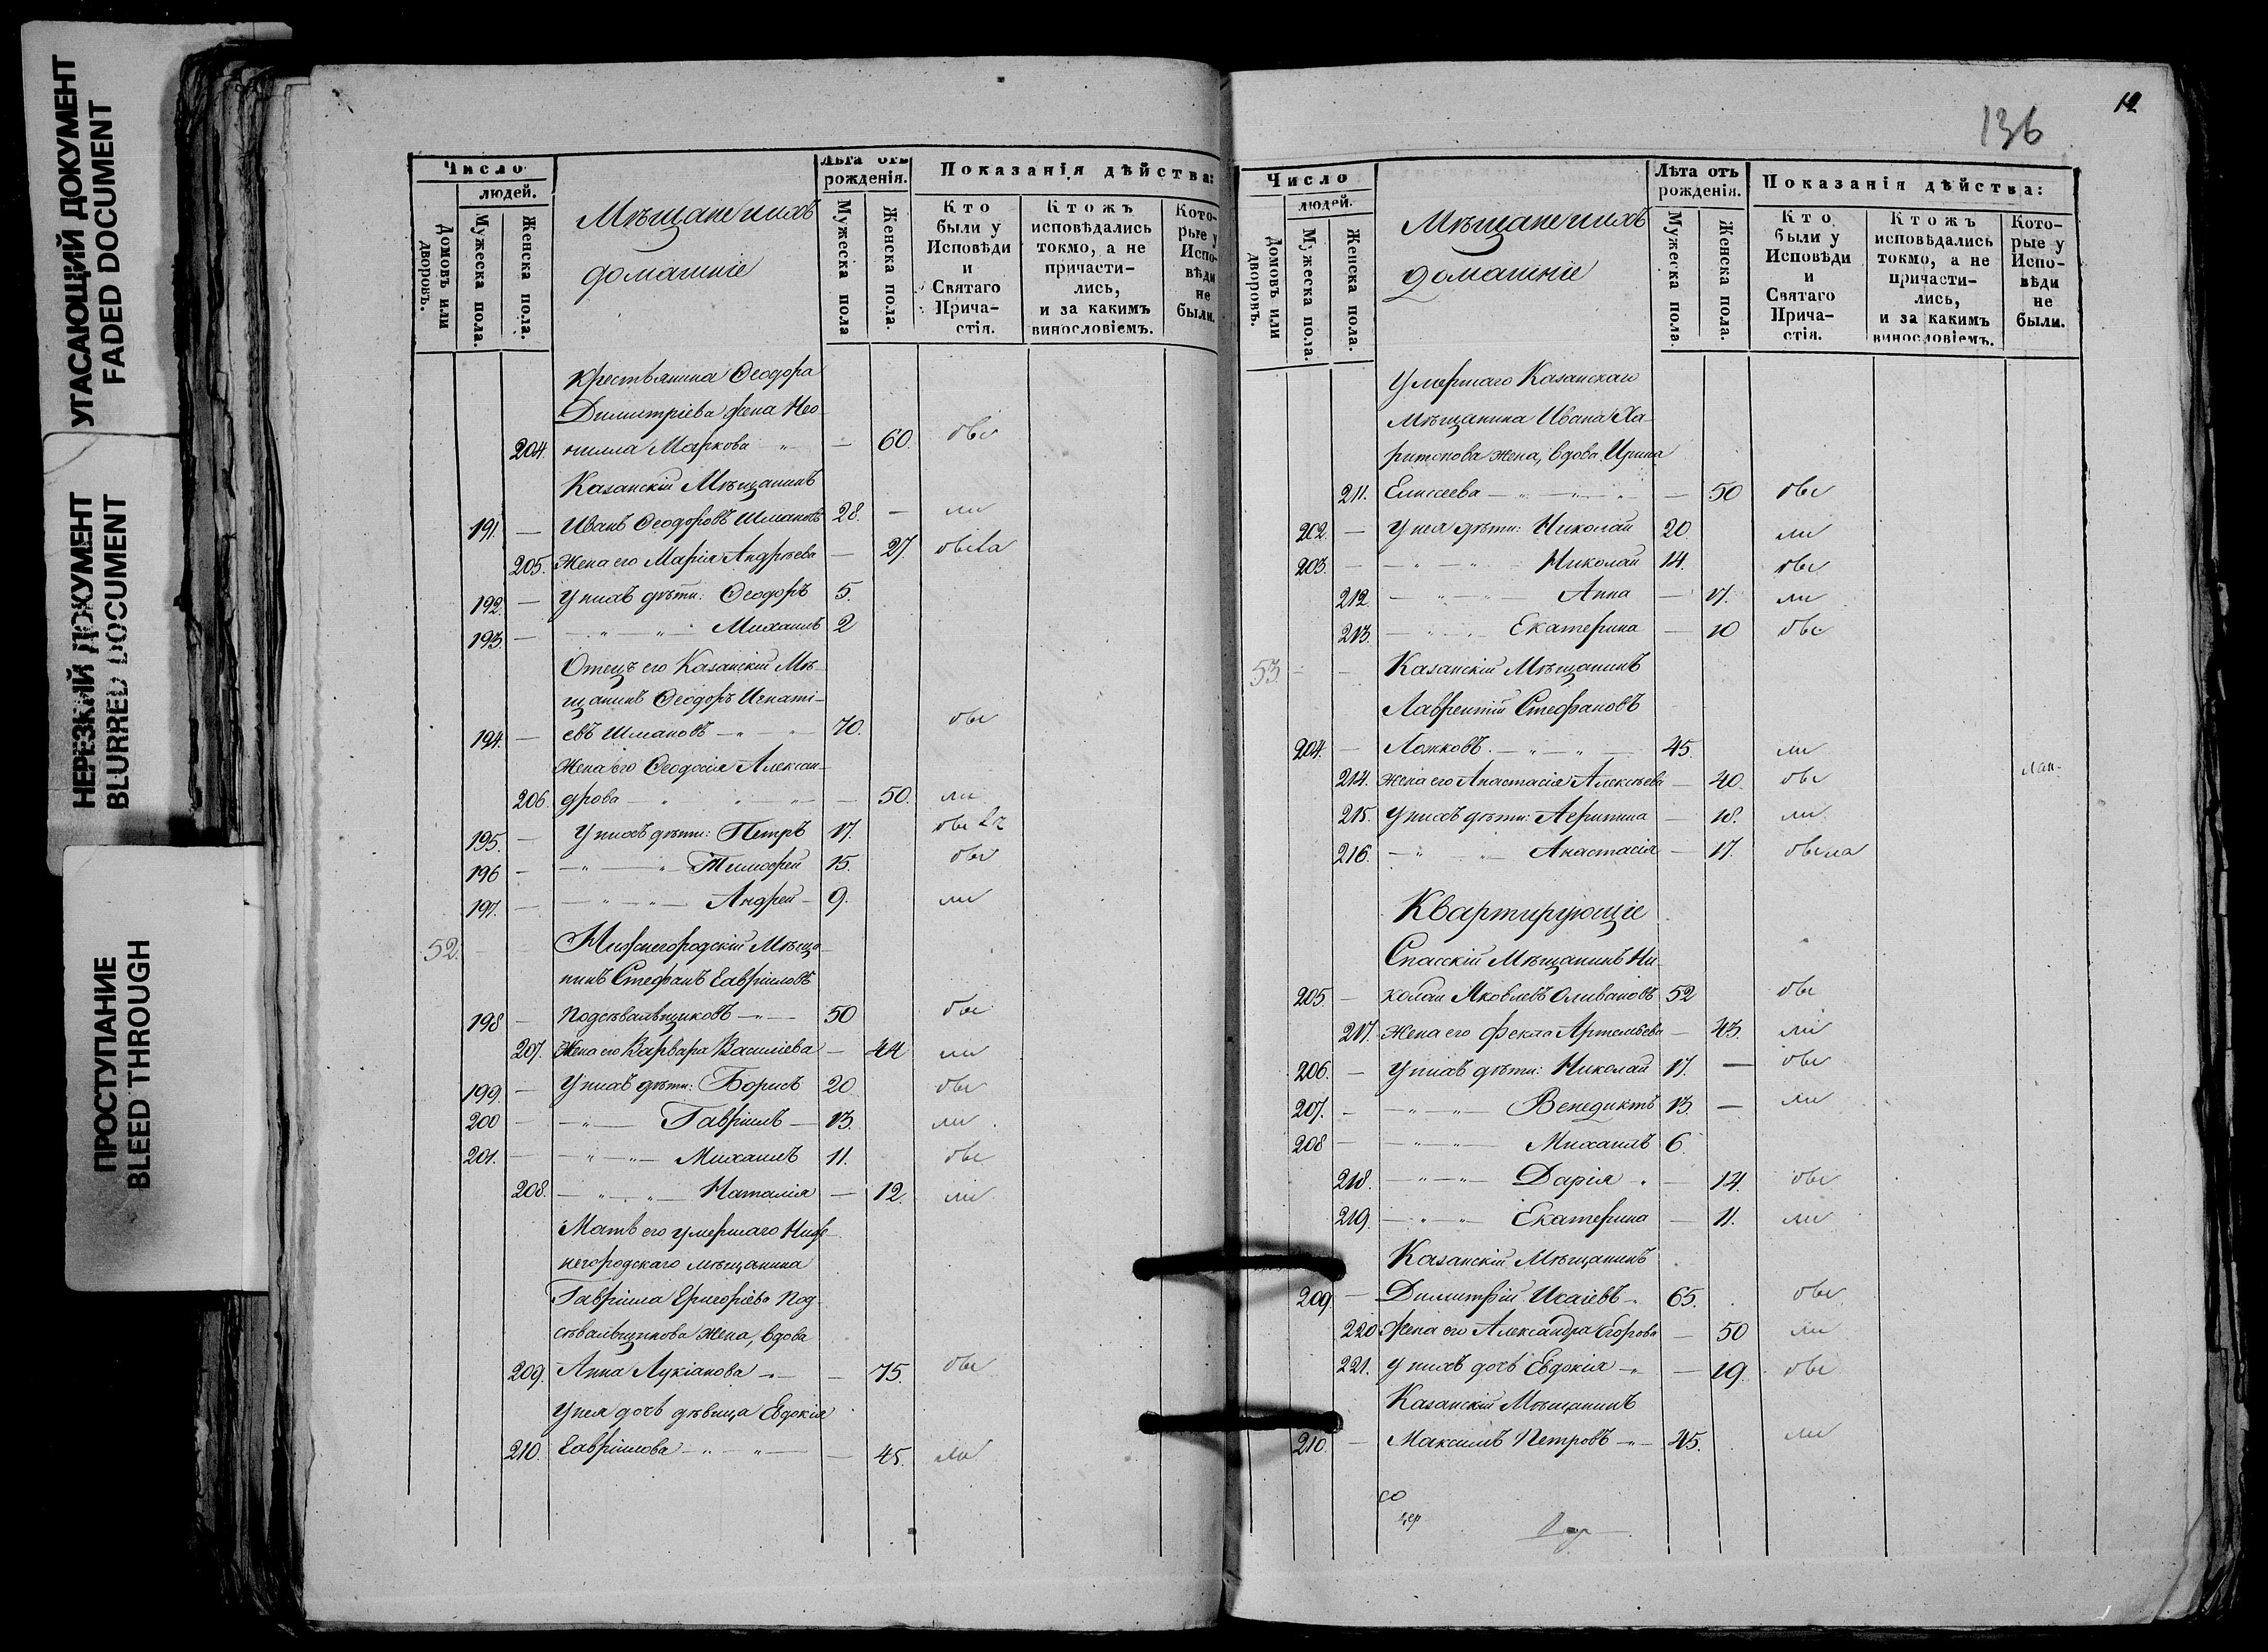 УГАСАЮЩИЙ ДОКУМЕНТ
FADED DOCUMENT
НЕРЕЗКИЙ ДОКУМЕНТ
BLURRED DOCUMENT
ПРОСТУПАНИЕ
BLEED THROUGH
Число
людей.
Домовъ или дворовъ.
Мужеска пола.
Женска пола.
Мѣщане и ихъ
домашніе
Лѣта отъ
рожденія.
Мужеска пола
Женска пола.
Показанія дѣйства:
Кто
были у
Исповѣди
и
Святаго
Прича-
стія.
Ктожъ
исповѣдались
токмо, а не
причасти-
лись,
и за какимъ
винословіемъ.
Кото-
рые у
Испо-
вѣди
не
были.
Крестьянина Ѳеодора
Димитріева жена Нео-
204. нилла Маркова — 60. обе
Казанскій Мѣщанинъ
191. — Иванъ Ѳеодоровъ Шмановъ 28. — ли
205. Жена его Марія Андреева — 27.
192. — У нихъ дѣти: Ѳеодоръ 5.
193. — Михаилъ 2
Отецъ его Казанскій Мѣ-
щанинъ Ѳеодоръ Игнаті-
194. — евъ Шмановъ 70. обе
Жена его Ѳеодосія Алексан-
206. дрова — 50. ли
195. — У нихъ дѣти: Петръ 17. обе
196 — Тимофей 15. обе
197. — Андрей 9. ли
52. Нижегородскій Мѣща-
нинъ Стефанъ Гавріиловъ
198 — Подсѣвальщиковъ 50 обе
207. Жена его Варвара Василіева — 44 ли
199. — У нихъ дѣти: Борисъ 20 обе
200 — Гавріилъ 13. ли
201. — Михаилъ 11. обе
208. Наталія — 12. ли
Мать его умершаго Ниж-
негородскаго мѣщанина
Гавріила Григоріева Под-
сѣвальщикова жена, вдова
209. Анна Лукіанова — 75. обе
У нея дочь дѣвица Евдокія
210. Гавріилова — 45. ли
136
12
Число
людей.
Домовъ или дворовъ.
Мужеска пола.
Женска пола.
Мѣщане и ихъ
домашніе
Лѣта отъ
рожденія.
Мужеска пола.
Женска пола.
Показанія дѣйства:
Кто
были у
Исповѣди
и
Святаго
Прича-
стія.
Ктожъ
исповѣдались
токмо, а не
причасти-
лись,
и за какимъ
винословіемъ.
Кото-
рые у
Испо-
вѣди
не
были.
Умершаго Казанскаго
Мѣщанина Ивана Ха-
ритонова жена, вдова Ирина
211. Елисеева — 50 обе
202. — У нея дѣти: Николай 20 ли
203. — Николай 14. обе
212. Анна — 17. ли
213. Екатерина — 10 обе
53. — — Казанскій Мѣщанинъ
Лаврентій Стефановъ
204. — Ложковъ. 45. ли
214. Жена его Анастасія Алексѣева — 40. обе
215. У нихъ дѣти: — 18. ли
216. Анастасія — 17.
Квартирующіе
Спасскій Мѣщанинъ Ни-
205. — колай Яковлевъ Оливановъ 52 обе
217. Жена его Фекла Артемьева — 43. ли
206. — У нихъ дѣти: Николай 17. — обе
207. — Венедиктъ 13. — ли
208 — Михаилъ 6.
218. Дарія — 14. обе
219. Екатерина — 11. ли
Казанскій Мѣщанинъ
209 — Димитрій Исаіевъ 65. обе
220 Жена его Александра Егорова — 50 ли
221. У нихъ дочь Евдокія — 19. обе
Казанскій Мѣщанинъ
210. — Максимъ Петровъ 45. ли